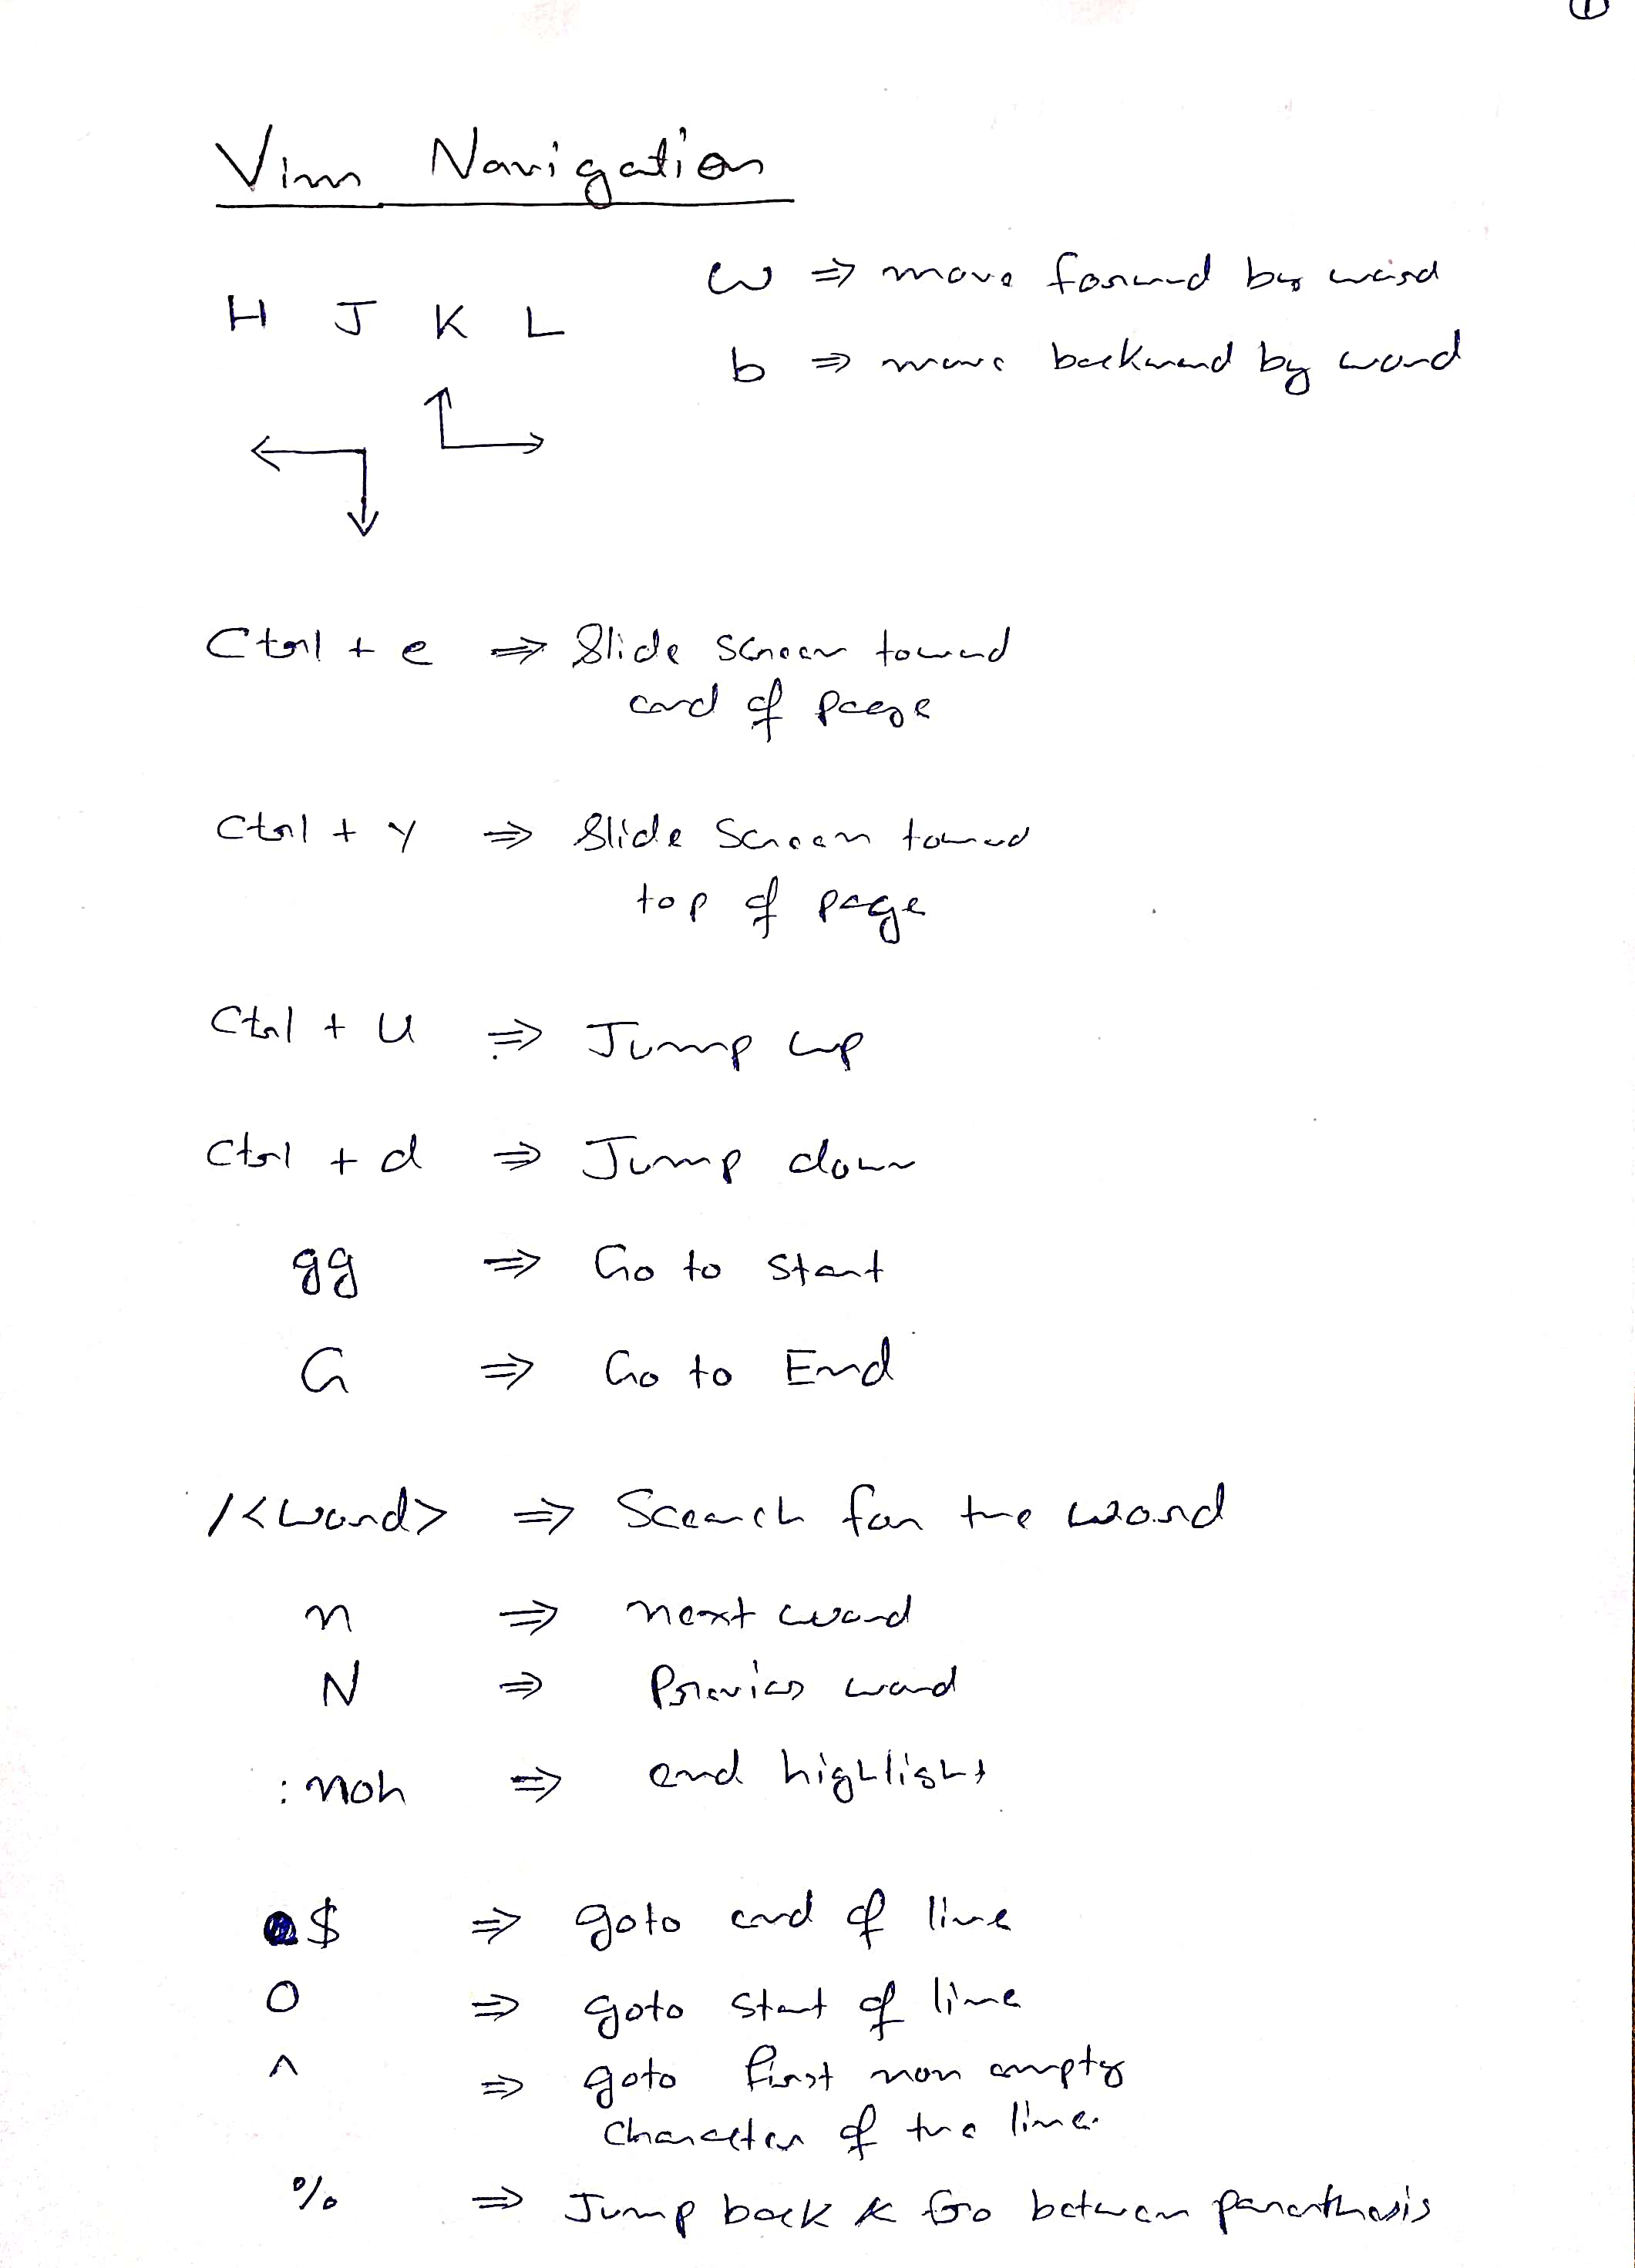 1
Vim Navigation
H J K L
w ⇒ move forward by word
b ⇒ move backward by word
Ctrl + e ⇒ Slide screen toward
end of page
Ctrl + y ⇒ Slide Screen toward
top of page
Ctrl + U ⇒ Jump up
Ctrl + d ⇒ Jump down
gg ⇒ Go to start
G ⇒ Go to End
/<word> ⇒ Search for the word
n ⇒ next word
N ⇒ Previous word
:noh ⇒ end highlight
$ ⇒ goto end of line
0 ⇒ goto start of line
^ ⇒ goto first non empty
character of the line.
% ⇒ Jump back & fro between paranthesis